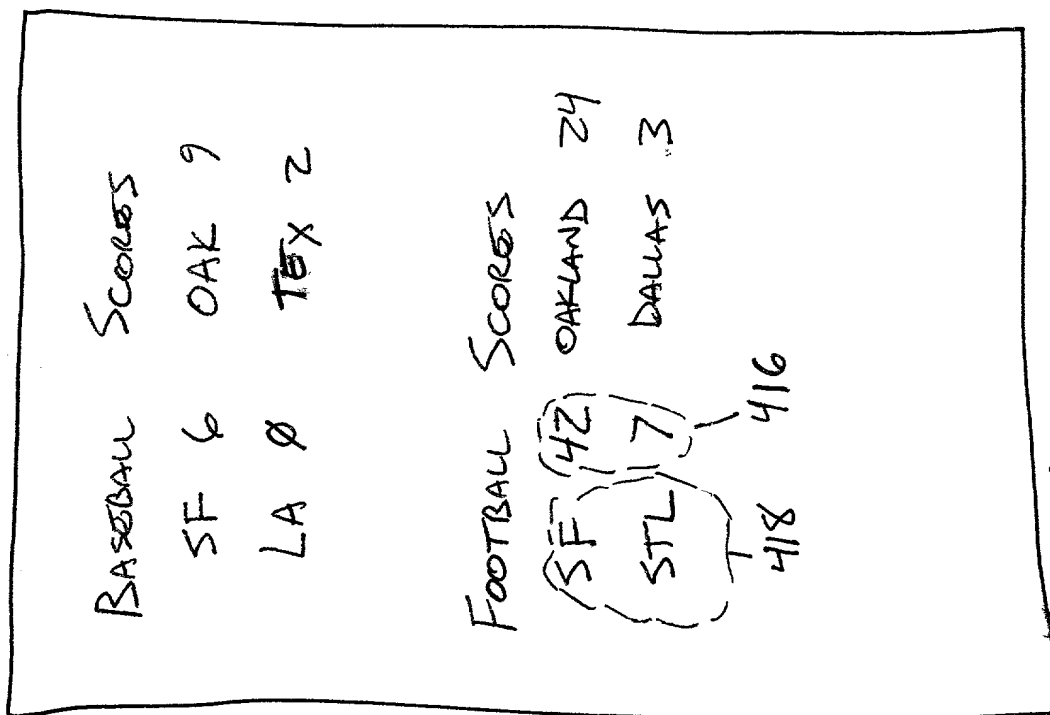 BASEBALL SCORES
SF 6 OAK 9
LA 0 TEX 2
FOOTBALL SCORES
SF 42 OAKLAND 24
STL 7 DALLAS 3
418 416